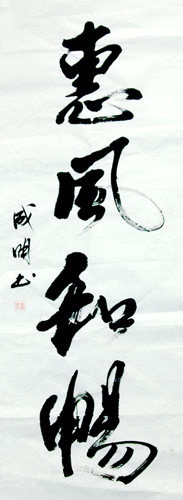 惠風和暢
成明书